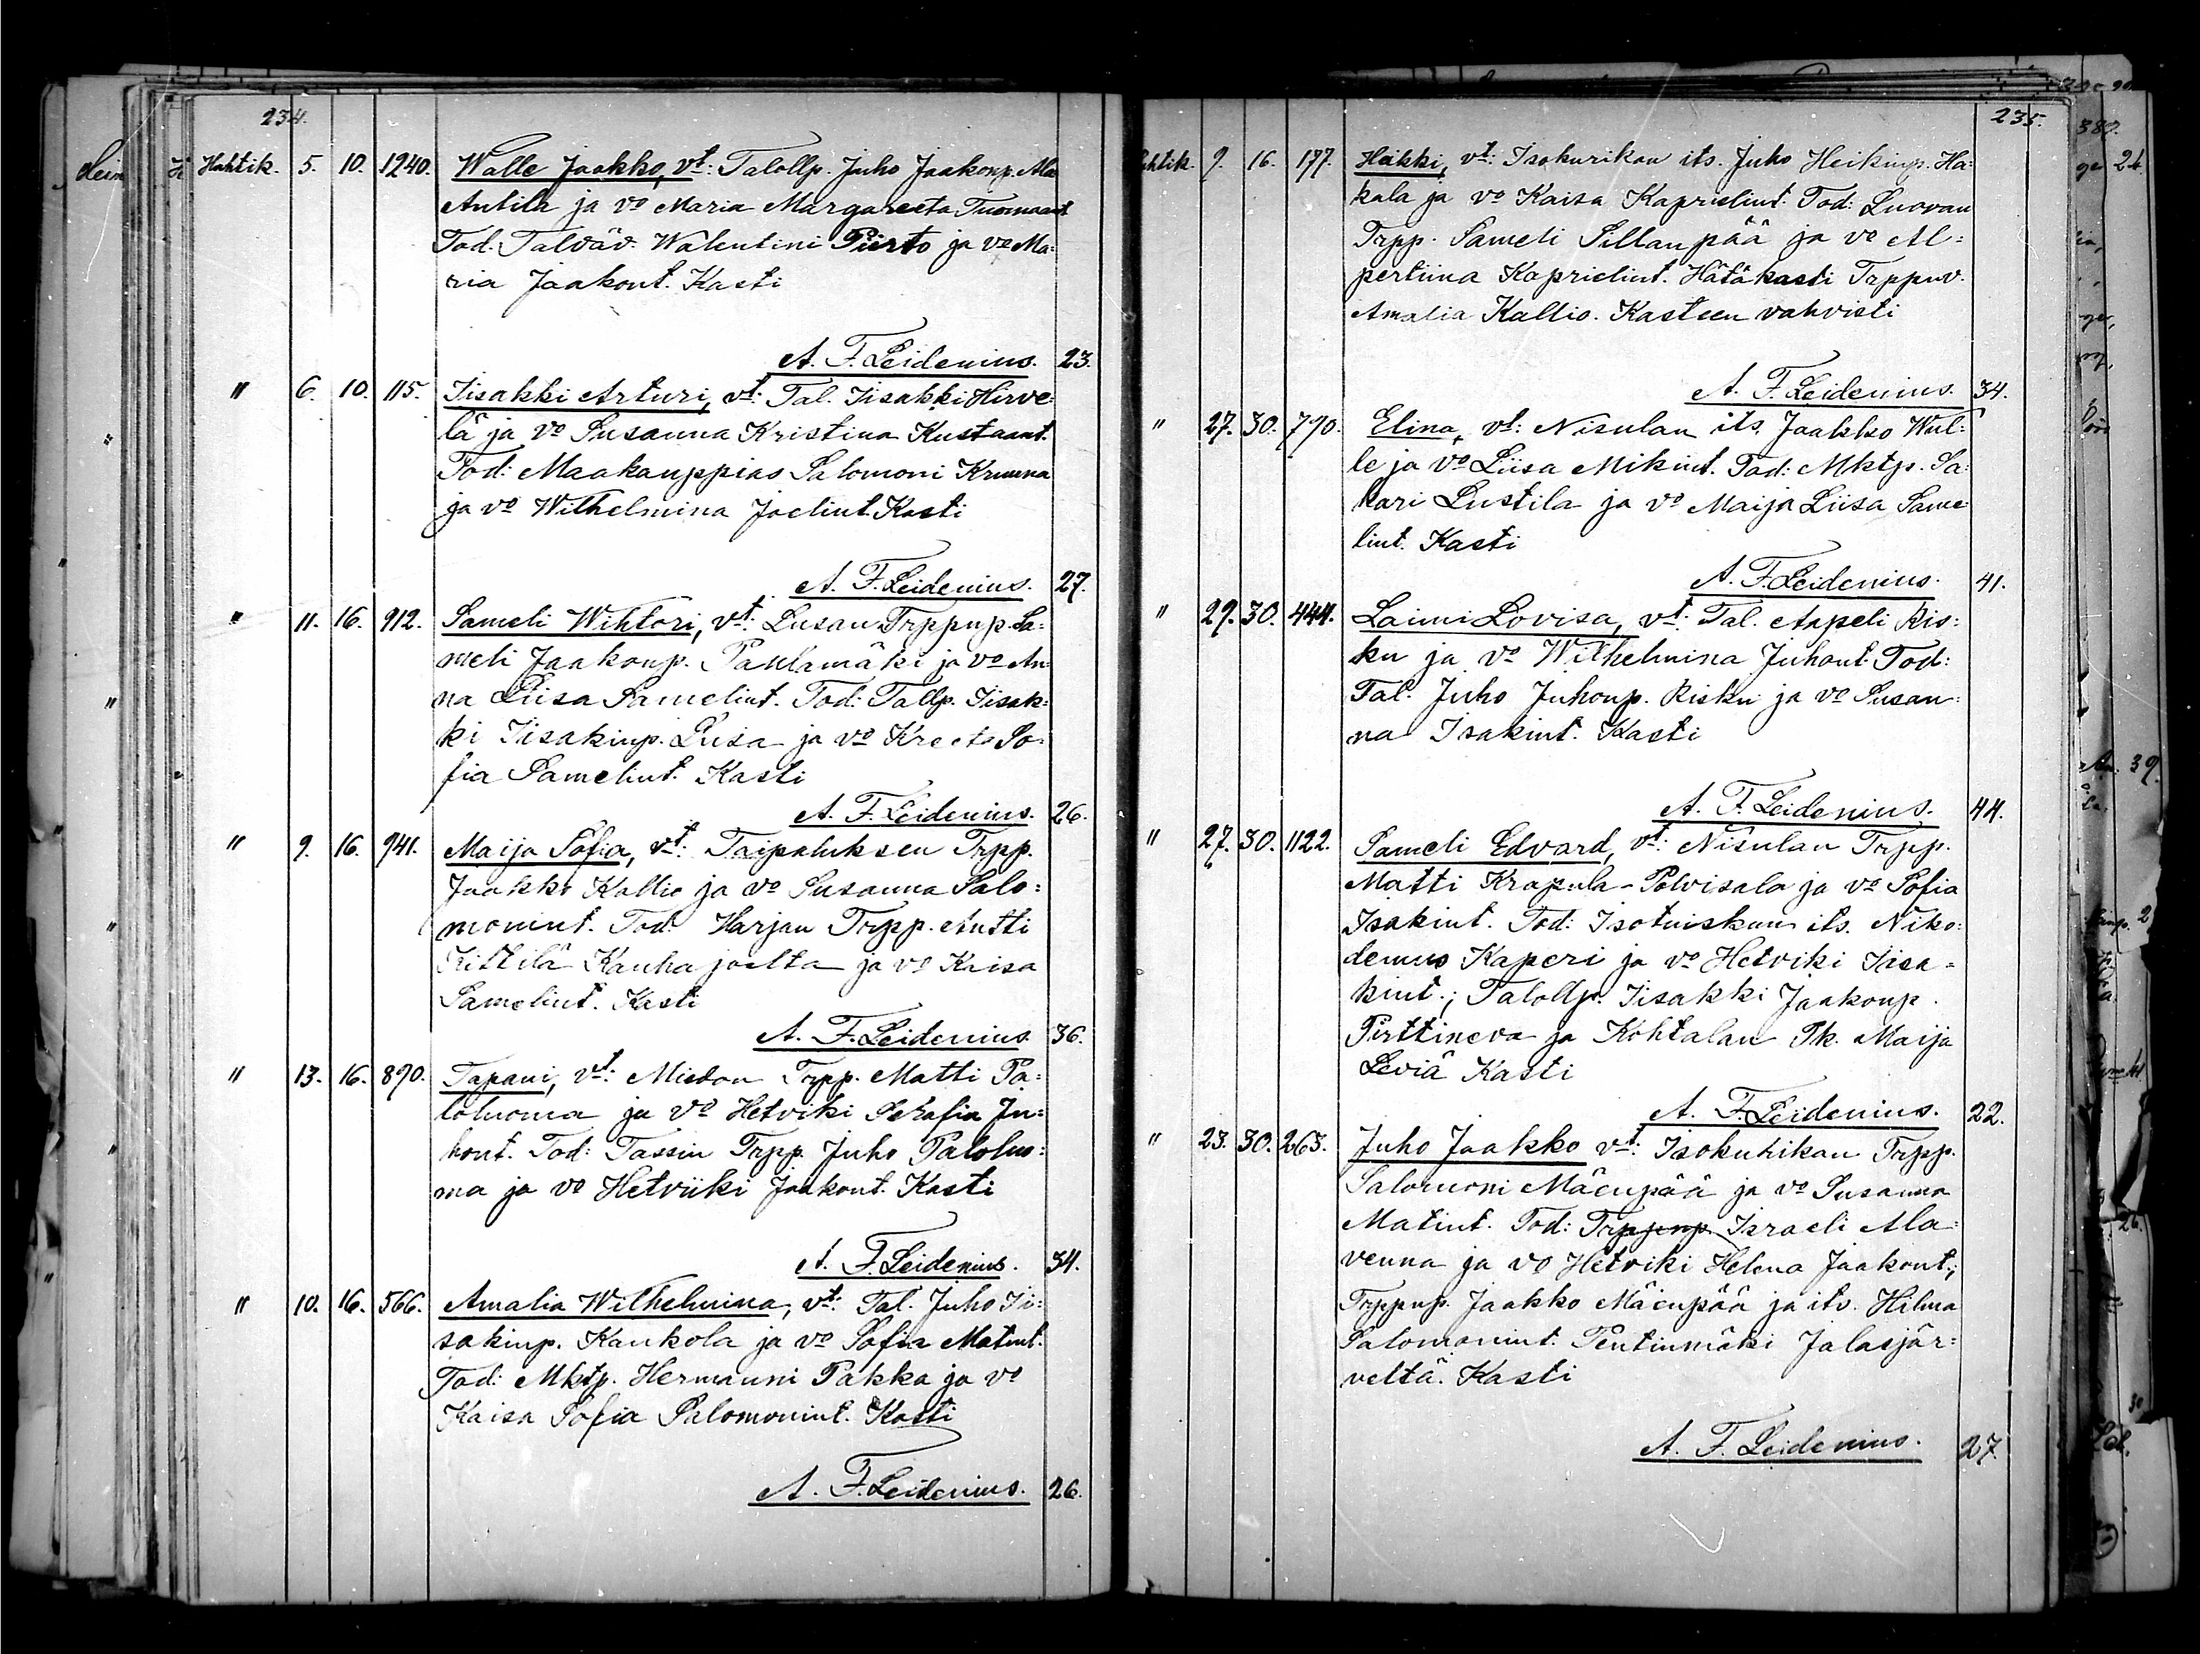 234.
Huhtik. 5. 10. 1240. Walle Jaakko, vt: Talollp. Juho Jaakonp. Ala
Antila ja vo Maria Margareeta Tuomaant
Tod. Talväv. Walentini Piirto ja vo Ma:
ria Jaakont. Kasti
A. F. Leidenius. 23.
" 6. 10. 115. Iisakki Arturi, vt: Tal. Iisakki Hirve:
lä ja vo Susanna Kristina Kustaant.
Tod: Maakauppias Salomoni Krunna
ja vo Wilhelmina Joelint. Kasti
A. F. Leidenius. 27.
" 11. 16. 912. Sameli Wihtori, vt: Lusan Trppnp. Sa:
meli Jaakonp. Panlamäki ja vo An:
na Liisa Samelint. Tod: Tallp. Iisak:
ki Iisakinp. Luisa ja vo Kreeta So:
fia Samelint. Kasti
A. F. Leidenius. 26.
" 9. 16. 941. Maija Sofia, vt: Taipaluksen Trpp.
Jaakko Kallio ja vo Susanna Salo:
monint. Tod: Harjan Trpp. Antti
Kittilä Kauhajoelta ja vo Kaisa
Samelint. Kasti
A. F. Leidenius. 36.
" 13. 16. 890. Tapani, vt: Miedon Trpp. Matti Pa:
loluoma ja vo Hetviki Serafia Ju:
hont. Tod: Tassin Trpp. Juho Palolno:
ma ja vo Hetviiki Jaakont. Kasti
A. F. Leidenius. 34.
" 10. 16. 566. Amalia Wilhelmina, vt: Tal. Juho Ii:
sakinp. Kaukola ja vo Sofia Matint.
Tod: Mktp. Hermanni Pakka ja vo
Kaisa Sofia Salomonint. Kasti
A. F. Leidenius. 26.
235.
9. 16. 177. Heikki, vt: Isokurikan its. Juho Heikinp. Ha:
kala ja vo Kaisa Kaprielint. Tod: Luovan
Trpp. Sameli Sillanpää ja vo Al:
pertiina Kaprielint. Hätäkasti Trppnv.
Amalia Kallio. Kasteen vahvisti
A. F. Leidenius. 34.
" 27. 30. 790. Elina, vt: Nisulan its. Jaakko Wal:
le ja vo Liisa Mikint. Tod: Mktp. Sa:
kari Lustila ja vo Maija Liisa Same
lint. Kasti
A. F. Leidenius. 41.
" 29. 30. 444. Laimi Lovisa, vt: Tal. Aapeli Ris:
ku ja vo Wilhelmina Juhont. Tod:
Tal. Juho Juhonp. Risku ja vo Susan:
na Isakint. Kasti
A. F. Leidenius. 44.
" 27. 30. 1122. Sameli Edvard, vt: Nisulan Trpp.
Matti Krapula-Polvisala ja vo Sofia
Isakint. Tod: Isotuiskun its. Niko:
demus Kaperi ja vo Hetviki Iisa:
kint.; Talollp. Iisakki Jaakonp.
Pirttineva ja Kohtalan Pk. Maija
Leviä Kasti
A. F. Leidenius. 22.
" 23. 30. 263. Juho Jaakko vt: Isokurikan Trpp.
Salomoni Mäenpää ja vo Susanna
Matint. Tod: Trppnp. Israeli Ala:
venna ja vo Hetviki Helena Jaakont.;
Trppnp. Jaakko Mäenpää ja its. Hilma
Salomonint. Pentinmäki Jalasjär:
veltä. Kasti
A. F. Leidenius. 27.